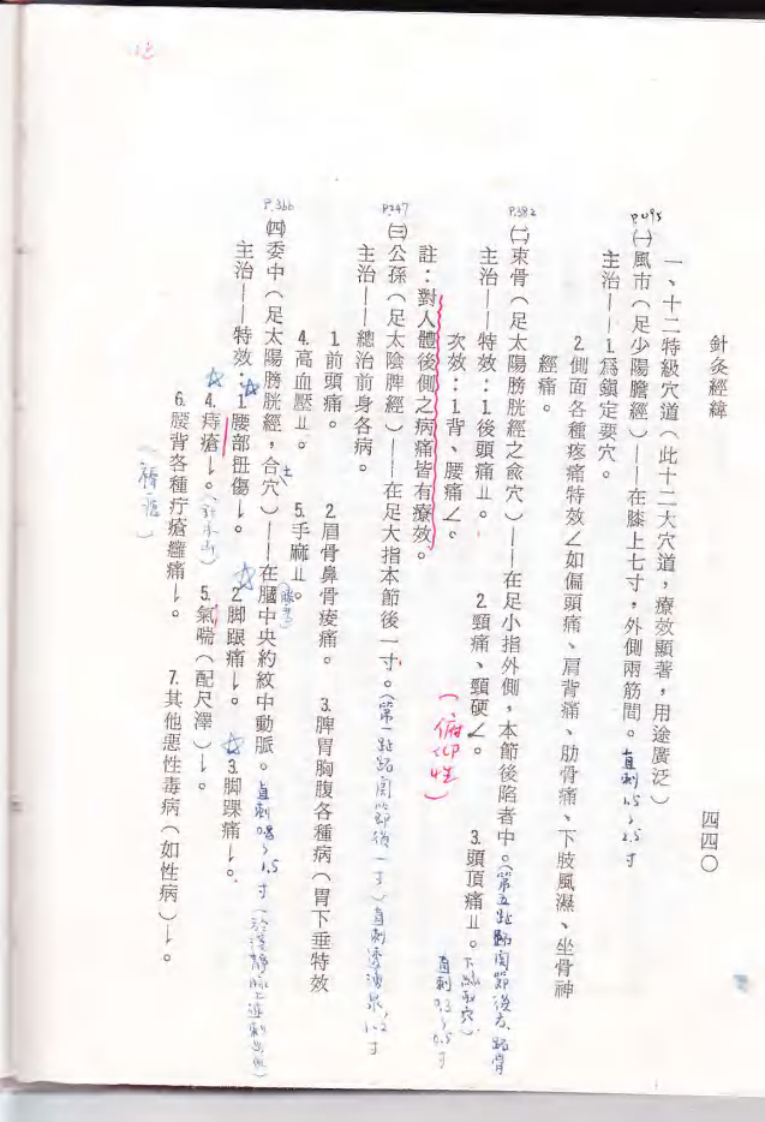 針灸經緯
四四〇
一、十二特級穴道（此十二大穴道，療效顯著，用途廣泛）
P.495
㈠風市（足少陽膽經）——在膝上七寸，外側兩筋間。直刺1.5～2.5寸
主治——1.為鎮定要穴。
2.側面各種疼痛特效∠如偏頭痛、肩背痛、肋骨痛、下肢風濕、坐骨神
經痛。
P.382
㈡束骨（足太陽膀胱經之兪穴）——在足小指外側，本節後陷者中。（第五趾蹠關節後方，蹠骨
下緣取穴）
主治——特效：1.後頭痛⊥⊥。 2.頸痛、頸硬∠。 3.頭頂痛⊥⊥。
直刺0.3～0.5寸
次效：1.背、腰痛∠。
（俯仰性）
註：對人體後側之病痛皆有療效。
P.247
㈢公孫（足太陰脾經）——在足大指本節後一寸。（第一趾蹠關節後一寸）直刺透湧泉，1.2寸
主治——總治前身各病。
1.前頭痛。 2.眉骨鼻骨痠痛。 3.脾胃胸腹各種病（胃下垂特效
4.高血壓⊥⊥。 5.手麻⊥⊥。
P.366
㈣委中（足太陽膀胱經，合穴）——在膕中央約紋中動脈。直刺0.8～1.5寸
土
主治——特效：1.腰部扭傷↓。 2.脚跟痛↓。 3.脚踝痛↓。
4.痔瘡↓。 5.氣喘（配尺澤）↓。
6.腰背各種疔瘡癰痛↓。 7.其他惡性毒病（如性病）↓。